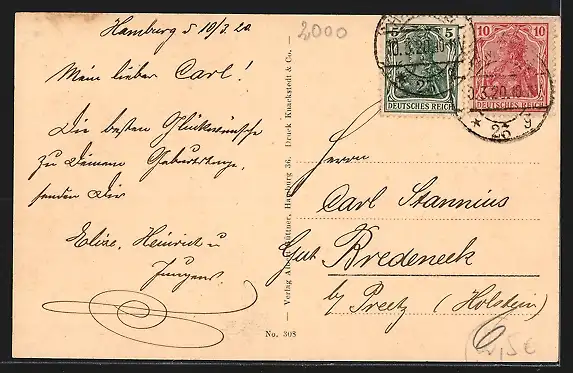 Hamburg d 10/3. 20.
Mein lieber Carl!
Die besten Glückwünsche
zu Deinem Geburtstage,
senden Dir
Elise, Heinrich u
Jungens.
No. 308
Verlag Albert Hüttner, Hamburg 36. Druck Knackstedt & Co.
2000
5
DEUTSCHES REICH
10
DEUTSCHES REICH
10.3.20.10-11
* 25
3.20.10
* 25 g
Herrn
Carl Stannius
Gut Bredeneck
by Preetz (Holstein)